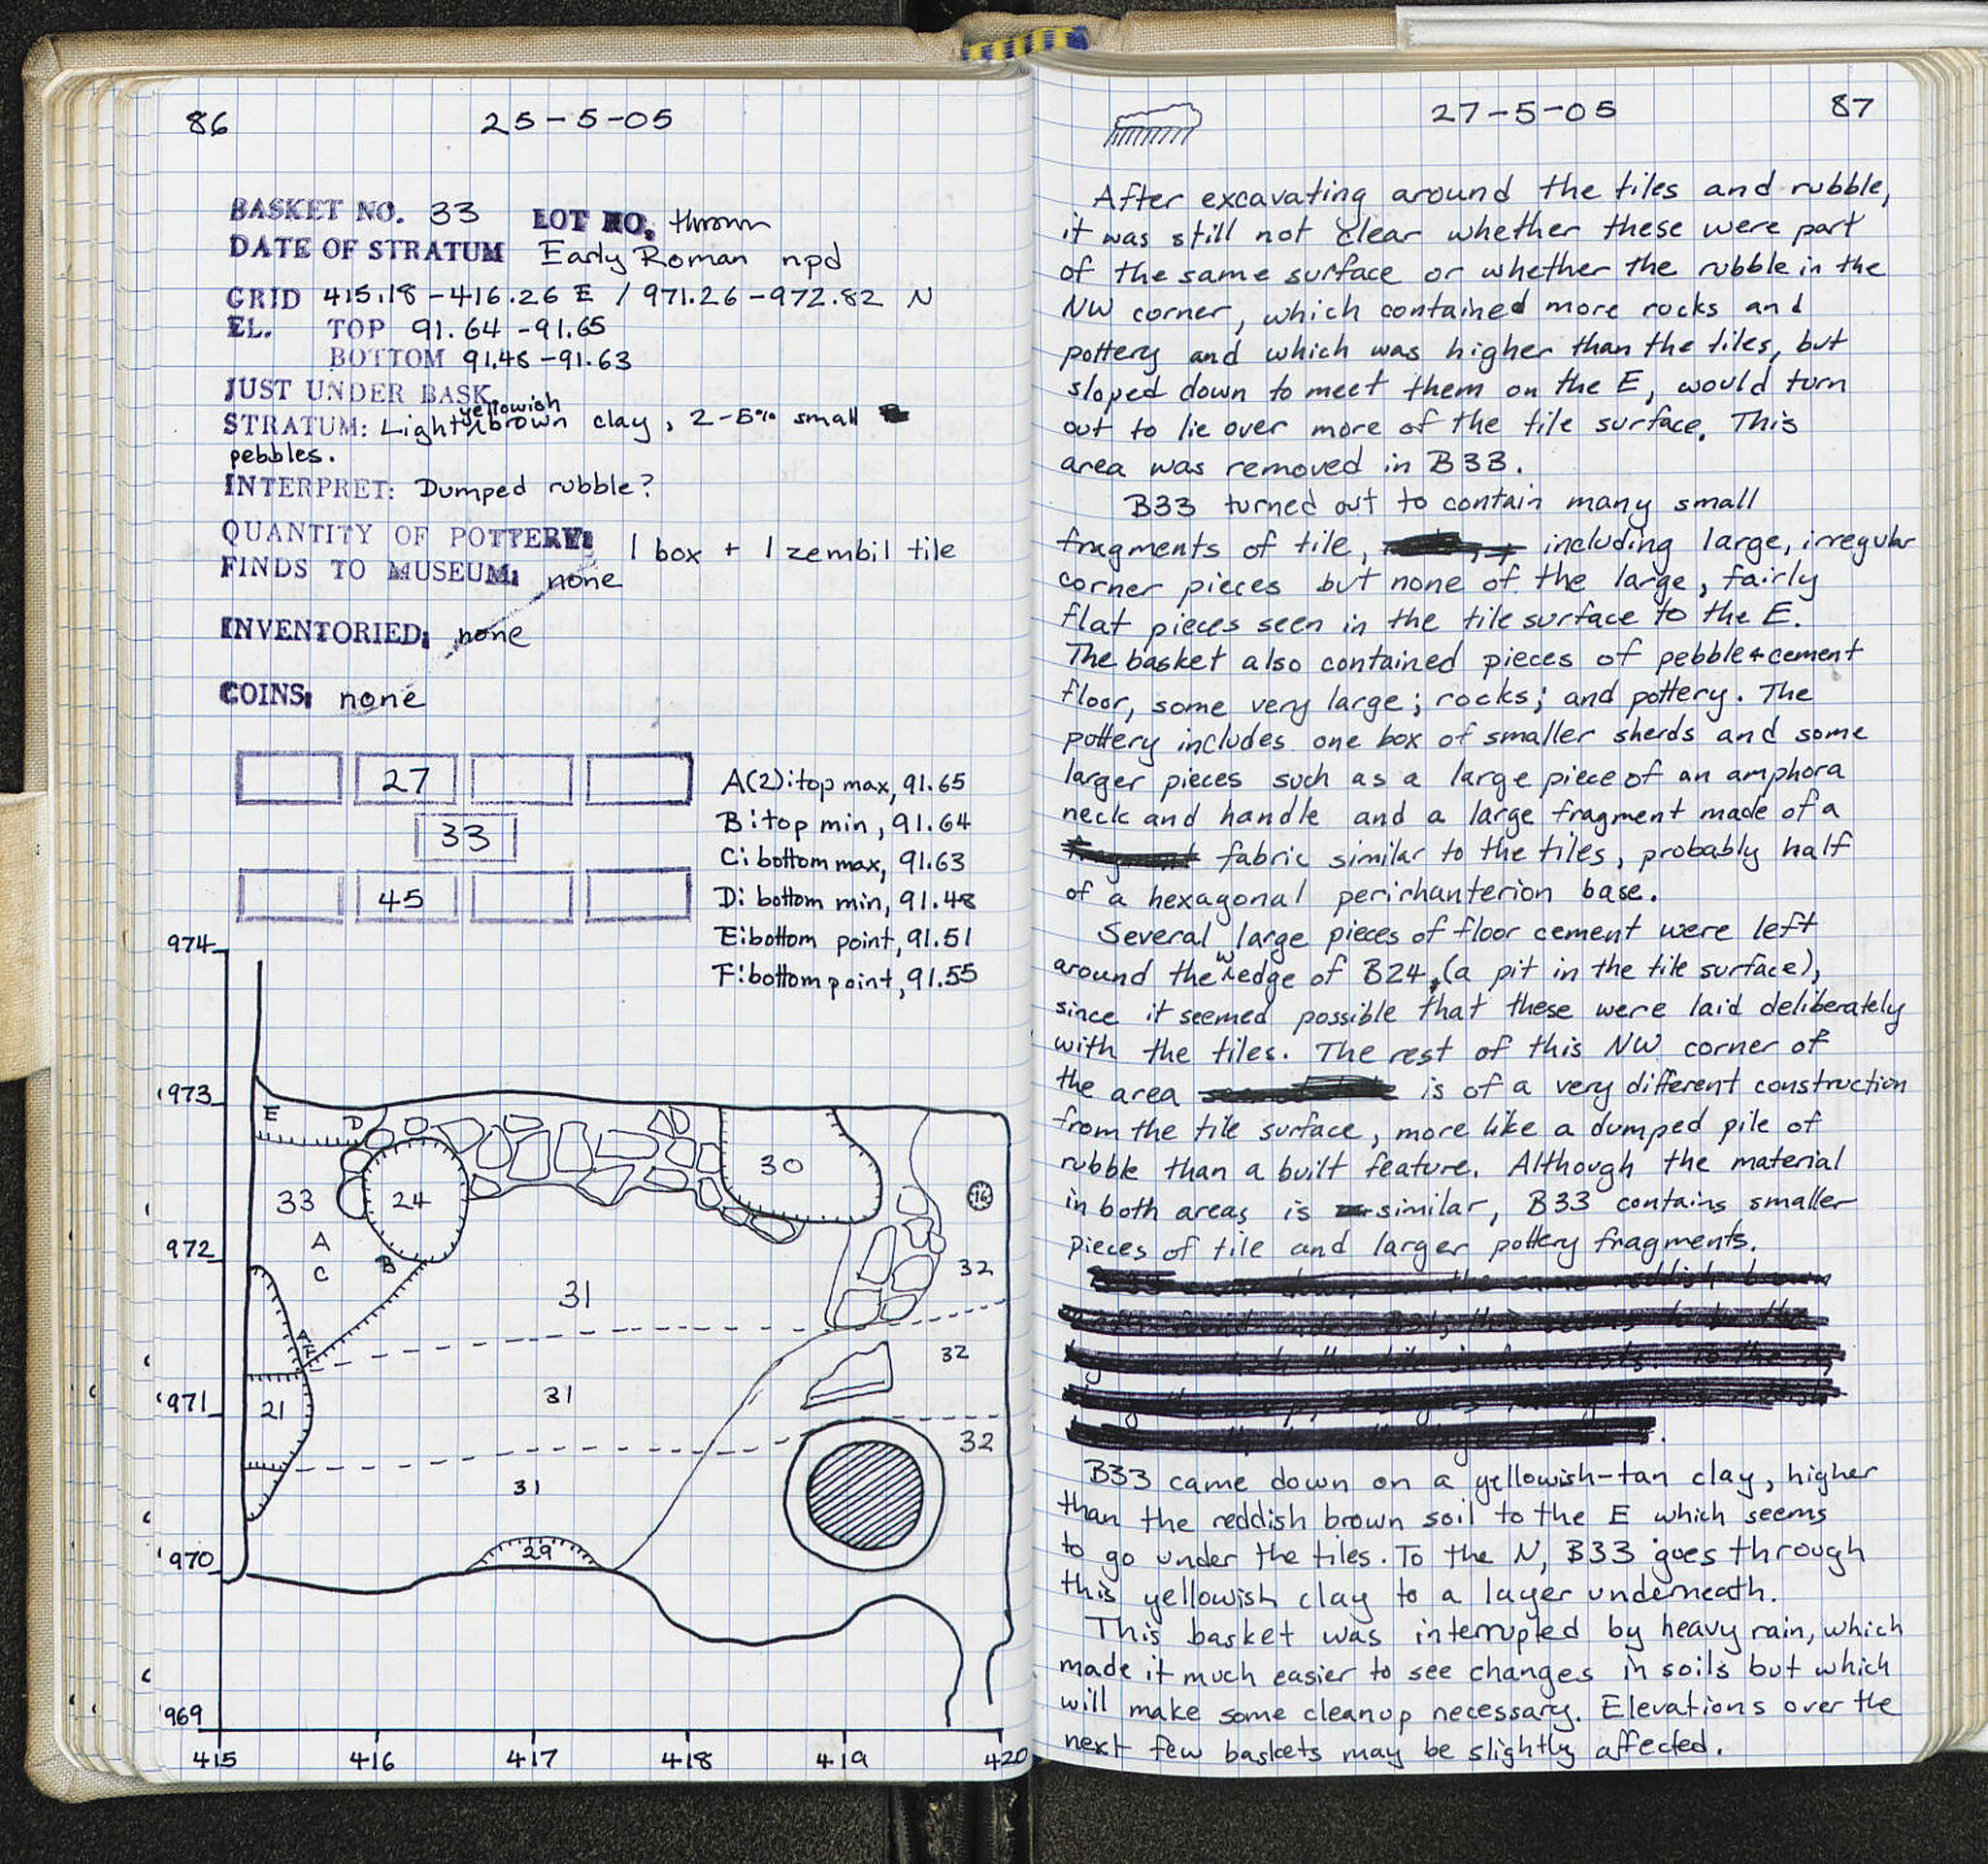 86
25-5-05
BASKET NO. 33 LOT NO. thrown
DATE OF STRATUM Early Roman npd
GRID 415.18-416.26 E / 971.26-972.82 N
EL. TOP 91.64-91.65
BOTTOM 91.48-91.63
JUST UNDER BASK.
yellowish
STRATUM: Light brown clay, 2-5% small
pebbles.
INTERPRET: Dumped rubble?
QUANTITY OF POTTERY: 1 box + 1 zembil tile
FINDS TO MUSEUM: none
INVENTORIED: none
COINS: none
27
33
45
A(2): top max, 91.65
B: top min, 91.64
C: bottom max, 91.63
D: bottom min, 91.48
E: bottom point, 91.51
F: bottom point, 91.55
974
973
972
971
970
969
415 416 417 418 419 420
E D
33 24 30 16
A
C B
31 32
F
31 32
21
31 32
29
27-5-05
87
After excavating around the tiles and rubble,
it was still not clear whether these were part
of the same surface or whether the rubble in the
NW corner, which contained more rocks and
pottery and which was higher than the tiles, but
sloped down to meet them on the E, would turn
out to lie over more of the tile surface. This
area was removed in B33.
B33 turned out to contain many small
fragments of tile, including large, irregular
corner pieces but none of the large, fairly
flat pieces seen in the tile surface to the E.
The basket also contained pieces of pebble + cement
floor, some very large; rocks; and pottery. The
pottery includes one box of smaller sherds and some
larger pieces such as a large piece of an amphora
neck and handle and a large fragment made of a
fabric similar to the tiles, probably half
of a hexagonal perirhanterion base.
Several large pieces of floor cement were left
around the W edge of B24, (a pit in the tile surface),
since it seemed possible that these were laid deliberately
with the tiles. The rest of this NW corner of
the area is of a very different construction
from the tile surface, more like a dumped pile of
rubble than a built feature. Although the material
in both areas is similar, B33 contains smaller
pieces of tile and larger pottery fragments.
B33 came down on a yellowish-tan clay, higher
than the reddish brown soil to the E which seems
to go under the tiles. To the N, B33 goes through
this yellowish clay to a layer underneath.
This basket was interrupted by heavy rain, which
made it much easier to see changes in soils but which
will make some cleanup necessary. Elevations over the
next few baskets may be slightly affected.